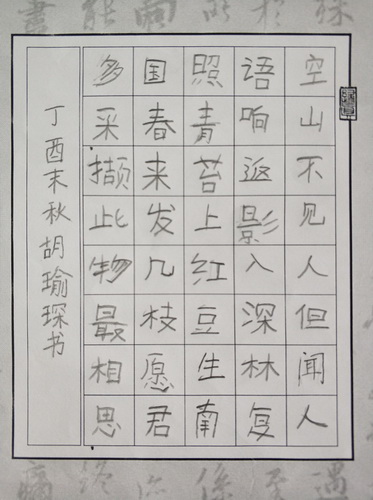 空山不见人但闻人
语响返影入深林复
照青苔上红豆生南
国春来发几枝愿君
多采撷此物最相思
丁酉末秋胡瑜琛书